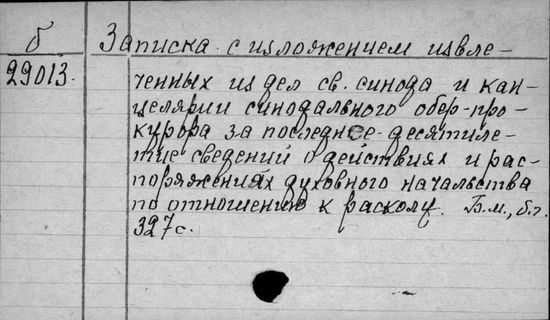 б
29013.
Записка с изложением извле-
ченных из дел св. синода и кан-
целярии синодального обер-про-
курора за последнее десятиле-
тие сведений о действиях и рас-
поряжениях духовного начальства
по отношению к расколу. Б.м., б.г.
327с.